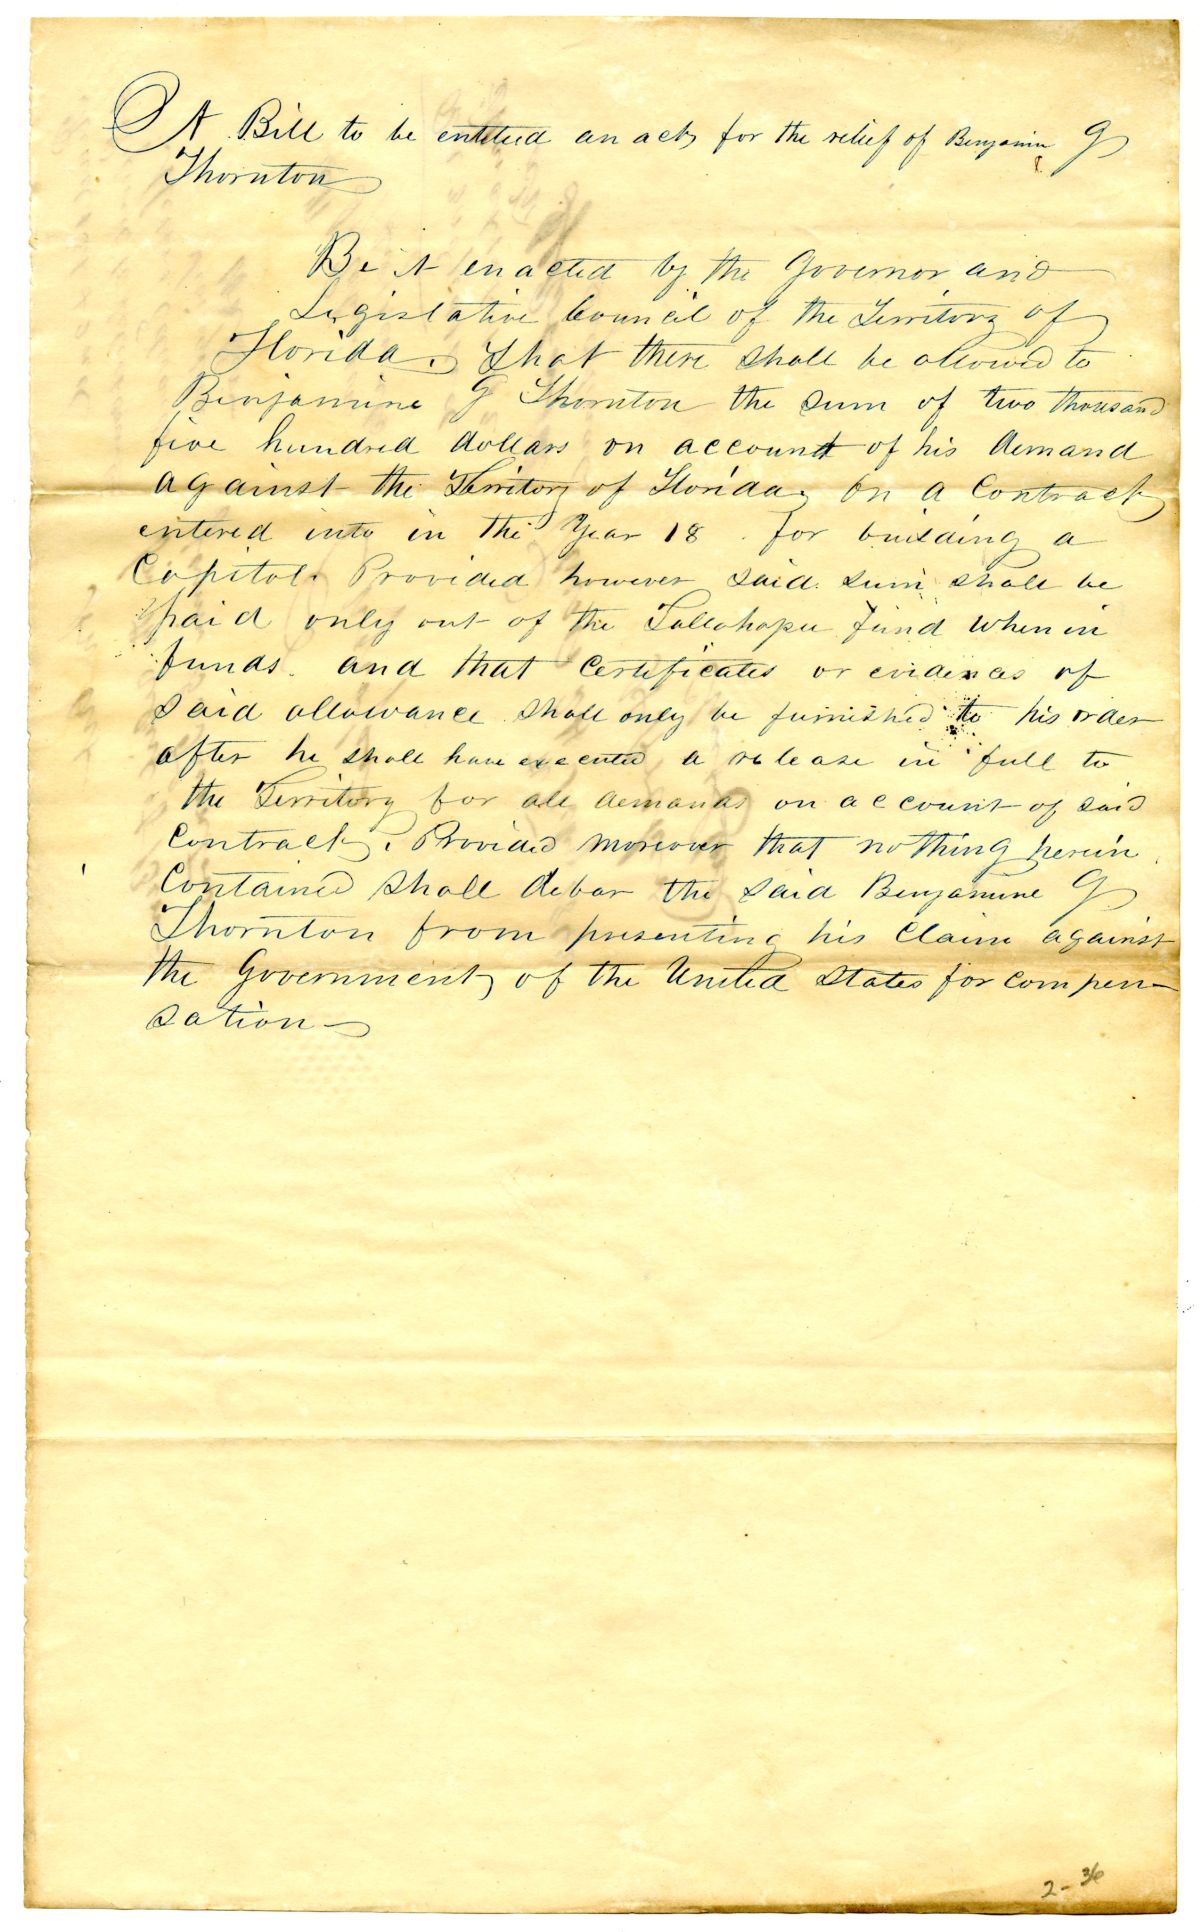 A Bill to be entitled an act, for the relief of Benjamin G
Thornton
Be it enacted by the Governor and
Legislative Council of the Territory of
Florida. That there shall be allowed to
Benjamine G Thornton the sum of two thousand
five hundred dollars on account of his demand
against the Territory of Florida, on a Contract
entered into in the Year 18 . for building a
Capitol. Provided however said sum shall be
paid only out of the Tallahapee fund when in
funds. and that Certificates or evidences of
said allowance shall only be furnished to his order
after he shall have executed a release in full to
the Territory for all demands on account of said
Contract. Provided moreover that nothing herein
Contained shall debar the said Benjamine G
Thornton from presenting his Claim against
the Government, of the United States for compen-
sation
2-36